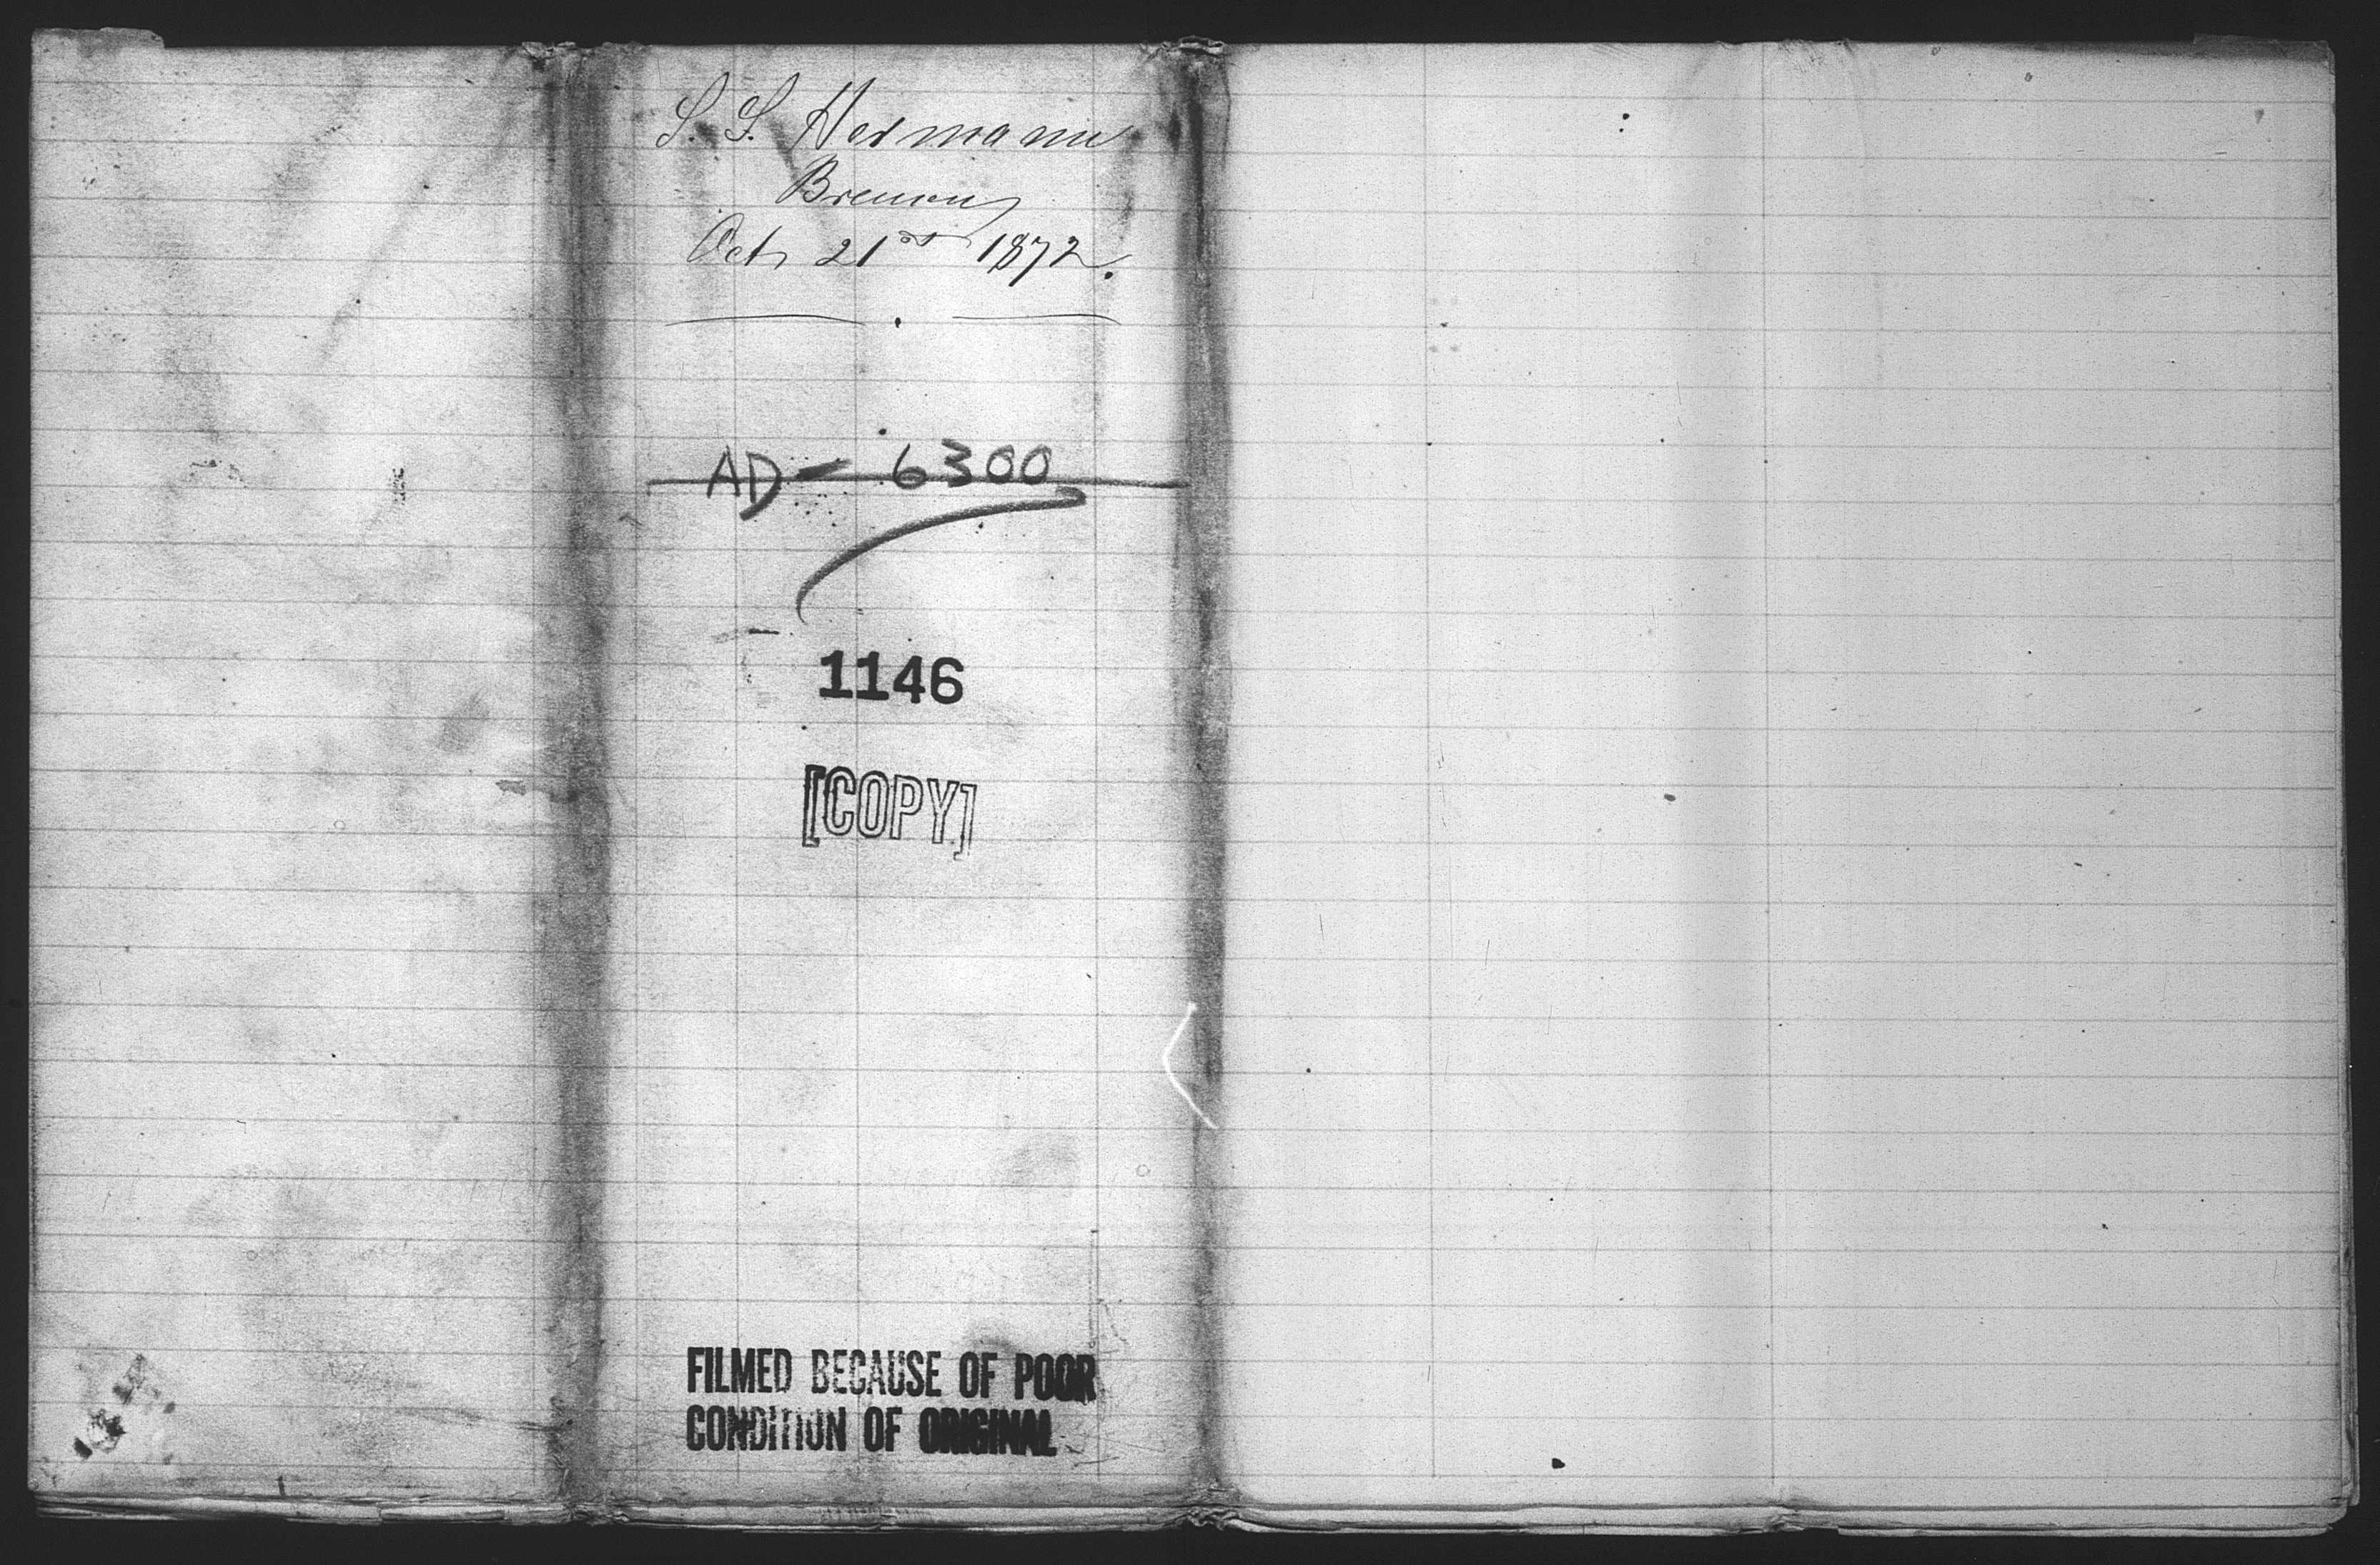 S. S. Hermann
Bremen
Oct, 21st 1872.
AD - 6300
1146
[COPY]
FILMED BECAUSE OF POOR
CONDITION OF ORIGINAL